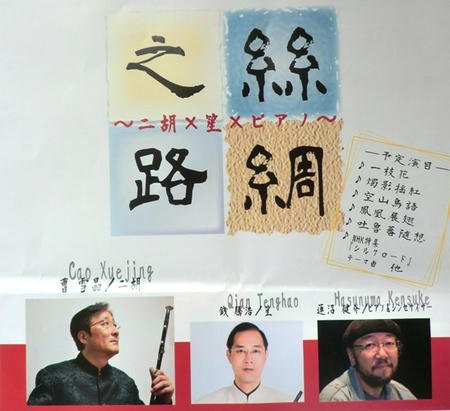 絲綢之路
～二胡×笙×ピアノ～
―予定演目―
♪一枝花
♪燭影揺紅
♪空山鳥語
♪鳳凰展翅
♪吐魯番随想
♪NHK特集
「シルクロード」
テーマ曲 他
Cao Xuejing
曹雪晶/二胡
Qian Tenghao
銭騰浩/笙
Hasunuma Kensuke
蓮沼健介/ピアノ&シンセサイザー